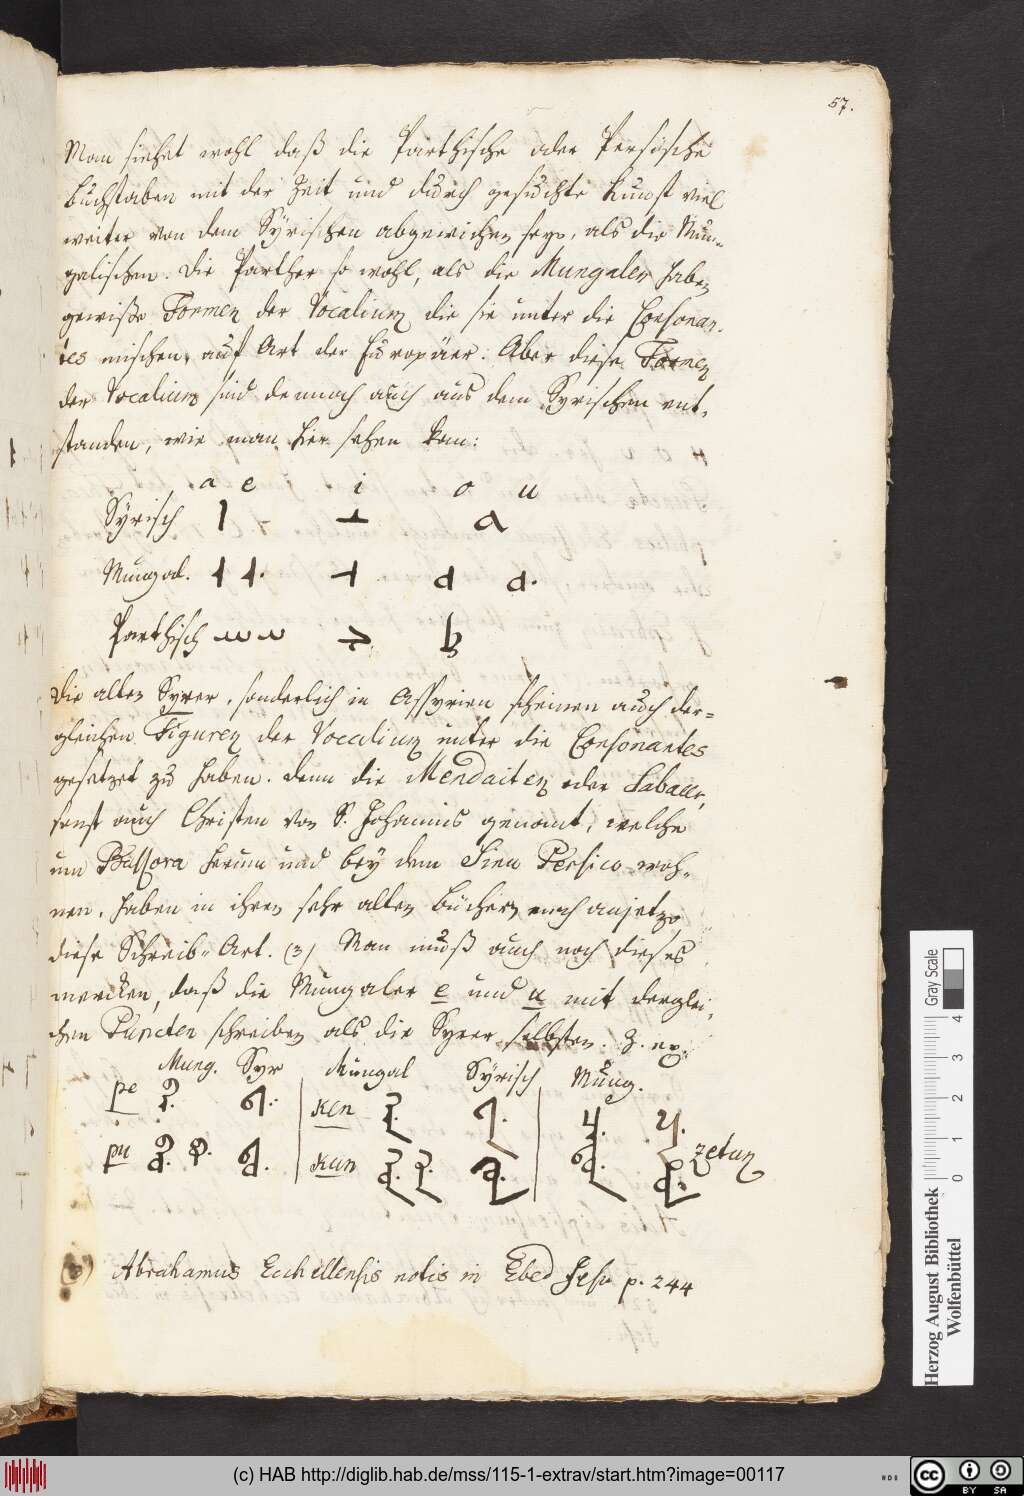 57.
Man siehet wohl daß die Parthische oder Persische
buchstaben mit der Zeit und durch gesuchte Kunst viel
weiter von dem Syrischen abgewichen seyn, als die Mun-
galischen. Die Parther so wohl, als die Mungalen haben
gewisse Formen der Vocalium die sie unter die Consonan-
tes mischen, auf Art der Europäer. Aber diese Formen
der Vocalium sind dennoch auch aus dem Syrischen ent-
standen, wie man hier sehen kan:
a e i o u
Syrisch
Mungal.
Parthisch
Die alten Syrer, sonderlich in Assyrien scheinen auch der-
gleichen Figuren der Vocalium unter die Consonantes
gesetzet zu haben. Denn die Mendaiten oder Sabaeer,
sonst auch Christen von S. Johannis genant, welche
um Bassora herum und bey dem Sinu Persico woh-
nen, haben in ihren sehr alten büchern noch anjetzo
diese Schreib-Art. (3) Man muß auch noch dieses
mercken, daß die Mungaler e und u mit derglei-
chen Puncten schreiben als die Syrer selbsten. Z. ex.
Mung. Syr Mungal Syrisch Mung.
pe ken
pu kun zetun
(3) Abrahamus Ecchellensis notis in Ebed Jesu p. 244
Gray Scale
0 1 2 3 4
Herzog August Bibliothek
Wolfenbüttel
(c) HAB http://diglib.hab.de/mss/115-1-extrav/start.htm?image=00117
HAB
cc BY SA